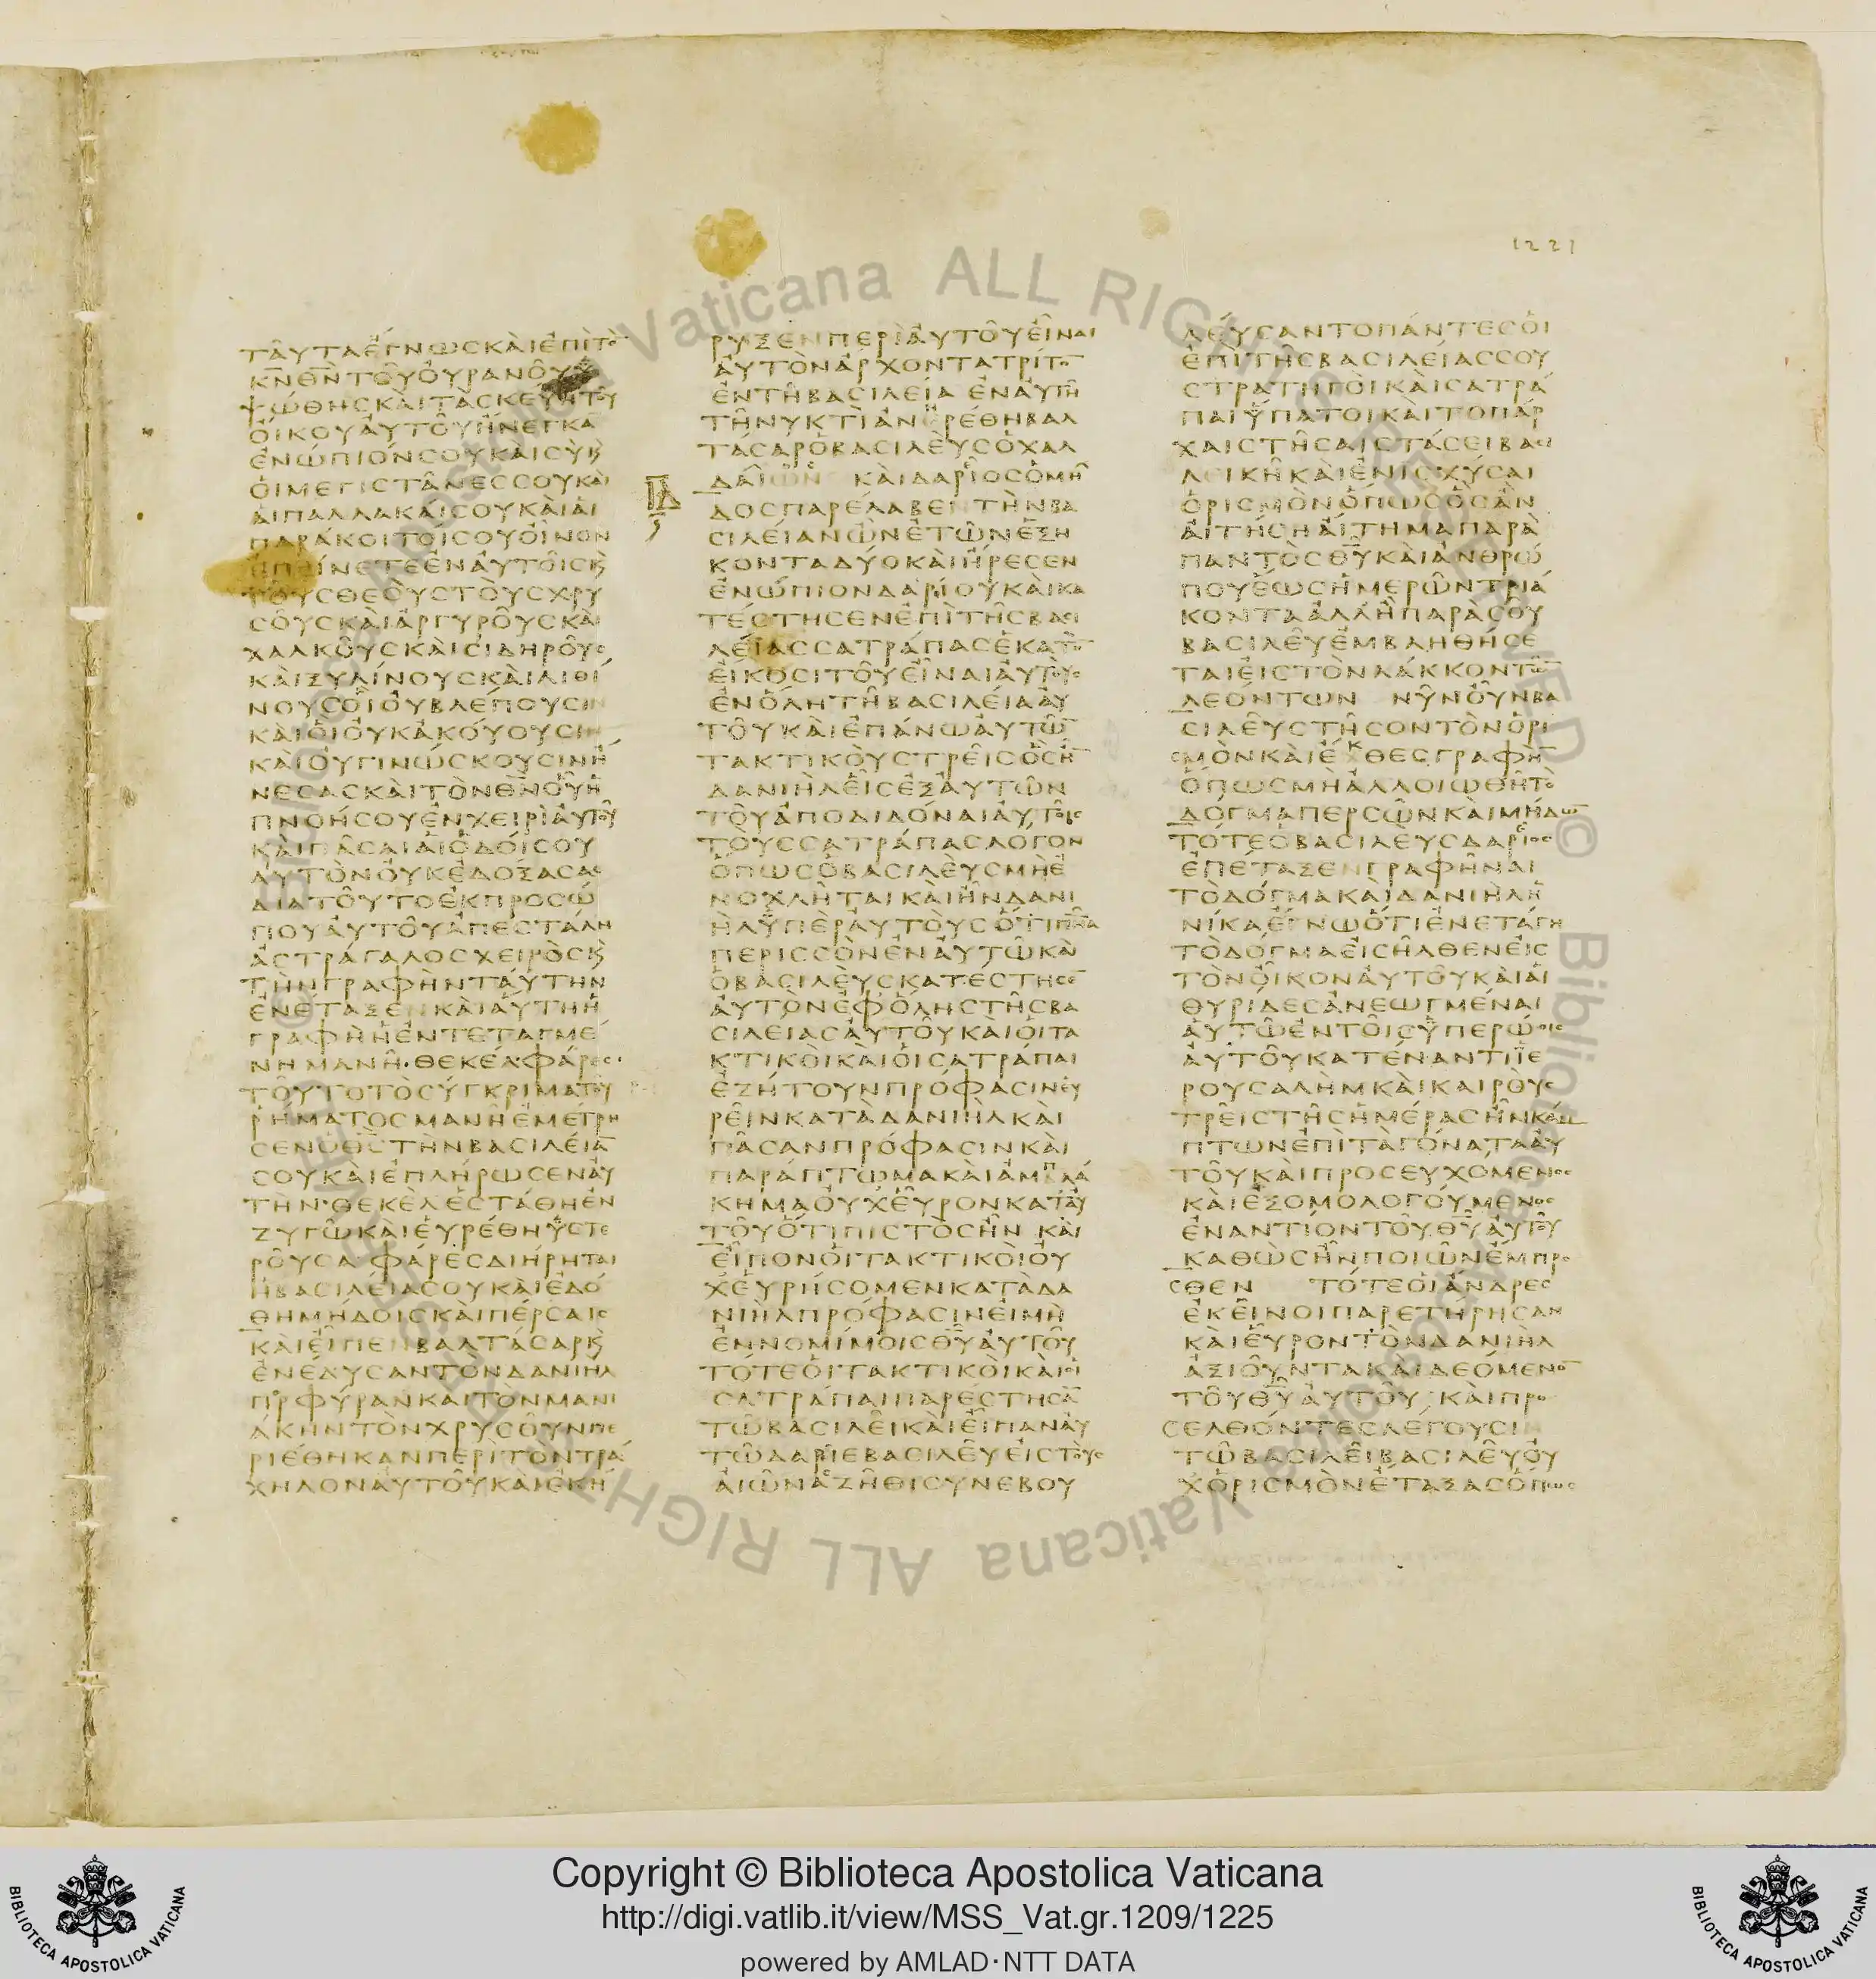 1221
ταῦτα ἔγνως καὶ ἐπὶ τὸ
κν θν τοῦ οὐρανοῦ ὑ
ψώθης καὶ τὰ σκεύη τοῦ
οἴκου αὐτοῦ ἤνεγκα
ἐνώπιόν σου καὶ σὺ κ
οἱ μεγιστᾶνες σου καὶ
αἱ παλλακαί σου καὶ αἱ
παράκοιτοί σου οἶνον
ἐπίνετε ἐν αὐτοῖς κ
τοὺς θεοὺς τοὺς χρυ
σοῦς καὶ ἀργυροῦς καὶ
χαλκοῦς καὶ σιδηροῦς
καὶ ξυλίνους καὶ λιθί
νους οἳ οὐ βλέπουσιν
καὶ οἳ οὐκ ἀκούουσιν
καὶ οὐ γινώσκουσιν ᾔ
νεσας καὶ τὸν θν οὗ ἡ
πνοή σου ἐν χειρὶ αὐτοῦ
καὶ πᾶσαι αἱ ὁδοί σου
αὐτὸν οὐκ ἐδόξασας
διὰ τοῦτο ἐκ προσώ
που αὐτοῦ ἀπεστάλη
ἀστράγαλος χειρὸς κ
τὴν γραφὴν ταύτην
ἐνέταξεν καὶ αὕτη ἡ
γραφὴ ἡ ἐντεταγμέ
νη μανὴ· θεκέλ· φάρες·
τοῦτο τὸ σύγκριμα τοῦ
ῥήματος μανὴ ἐμέτρη
σεν ὁ θς τὴν βασιλεία
σου καὶ ἐπλήρωσεν αὐ
τὴν· θεκὲλ ἐστάθη ἐν
ζυγῷ καὶ εὑρέθη ὑστε
ροῦσα φάρες διῄρηται
ἡ βασιλεία σου καὶ ἐδό
θη μήδοις καὶ πέρσαις
καὶ εἶπεν βαλτάσαρ κ
ἐνέδυσαν τὸν δανιὴλ
πορφύραν καὶ τὸν μανι
άκην τὸν χρυσοῦν πε
ριέθηκαν περὶ τὸν τρά
χηλον αὐτοῦ καὶ ἐκή
ρυξεν περὶ αὐτοῦ εἶναι
αὐτὸν ἄρχοντα τρίτο
ἐν τῇ βασιλείᾳ ἐν αὐτῇ
τῇ νυκτὶ ἀνῃρέθη βαλ
τάσαρ ὁ βασιλεὺς ὁ χαλ
δαίων καὶ δαρεῖος ὁ μῆ
δος παρέλαβεν τὴν βα
σιλείαν ὢν ἐτῶν ἑξή
κοντα δύο καὶ ἤρεσεν
ἐνώπιον δαρίου καὶ κα
τέστησεν ἐπὶ τῆς βασι
λείας σατράπας ἑκατὸ
εἴκοσι τοῦ εἶναι αὐτοὺς
ἐν ὅλῃ τῇ βασιλείᾳ αὐ
τοῦ καὶ ἐπάνω αὐτῶ
τακτικοὺς τρεῖς ὧν ἦ
δανιὴλ εἷς ἐξ αὐτῶν
τοῦ ἀποδιδόναι αὐτοῖς
τοὺς σατράπας λόγον
ὅπως ὁ βασιλεὺς μὴ ἐ
νοχλῆται καὶ ἦν δανι
ὴλ ὑπὲρ αὐτοὺς ὅτι πνα
περισσὸν ἐν αὐτῷ καὶ
ὁ βασιλεὺς κατέστησε
αὐτὸν ἐφ ὅλης τῆς βα
σιλείας αὐτοῦ καὶ οἱ τα
κτικοὶ καὶ οἱ σατράπαι
ἐζήτουν πρόφασιν εὑ
ρεῖν κατὰ δανιὴλ καὶ
πᾶσαν πρόφασιν καὶ
παράπτωμα καὶ ἀμπλά
κημα οὐχ εὗρον κατ αὐ
τοῦ ὅτι πιστὸς ἦν καὶ
εἶπον οἱ τακτικοὶ οὐ
χ εὑρήσομεν κατὰ δα
νιὴλ πρόφασιν εἰ μὴ
ἐν νομίμοις θυ αὐτοῦ
τότε οἱ τακτικοὶ καὶ οἱ
σατράπαι παρέστησα
τῷ βασιλεῖ καὶ εἶπαν αὐ
τῷ δαρεῖε βασιλεῦ εἰς τοὺς
αἰῶνας ζῆθι συνεβου
λεύσαντο πάντες οἱ
ἐπὶ τῆς βασιλείας σου
στρατηγοὶ καὶ σατρά
παι ὕπατοι καὶ τοπάρ
χαι στῆσαι στάσει βασι
λικῇ καὶ ἐνισχύσαι
ὁρισμὸν ὅπως ὃς ἂν
αἰτήσῃ αἴτημα παρὰ
παντὸς θυ καὶ ἀνθρώ
που ἕως ἡμερῶν τριά
κοντα ἀλλ ἢ παρὰ σοῦ
βασιλεῦ ἐμβληθήσε
ται εἰς τὸν λάκκον τῶ
λεόντων νῦν οὖν βα
σιλεῦ στῆσον τὸν ὁρι
σμὸν καὶ ἔκθες γραφὴ
ὅπως μὴ ἀλλοιωθῇ τὸ
δόγμα περσῶν καὶ μήδω
τότε ὁ βασιλεὺς δαρεῖος
ἐπέταξεν γραφῆναι
τὸ δόγμα καὶ δανιὴλ ἡ
νίκα ἔγνω ὅτι ἐνετάγη
τὸ δόγμα εἰσῆλθεν εἰς
τὸν οἶκον αὐτοῦ καὶ αἱ
θυρίδες ἀνεῳγμέναι
αὐτῷ ἐν τοῖς ὑπερῴοις
αὐτοῦ κατέναντι ϊε
ρουσαλὴμ καὶ καιροὺς
τρεῖς τῆς ἡμέρας ἦν κάμ
πτων ἐπὶ τὰ γόνατα αὐ
τοῦ καὶ προσευχόμενος
καὶ ἐξομολογούμενος
ἐναντίον τοῦ θυ αὐτοῦ
καθὼς ἦν ποιῶν ἔμπρο
σθεν τότε οἱ ἄνδρες
ἐκεῖνοι παρετήρησαν
καὶ εὗρον τὸν δανιὴλ
ἀξιοῦντα καὶ δεόμενο
τοῦ θυ αὐτοῦ καὶ προ
σελθόντες λέγουσιν
τῷ βασιλεῖ βασιλεῦ οὐ
χ ὁρισμὸν ἔταξας ὅπως
Copyright © Biblioteca Apostolica Vaticana
http://digi.vatlib.it/view/MSS_Vat.gr.1209/1225
powered by AMLAD·NTT DATA
BIBLIOTECA APOSTOLICA VATICANA
BIBLIOTECA APOSTOLICA VATICANA